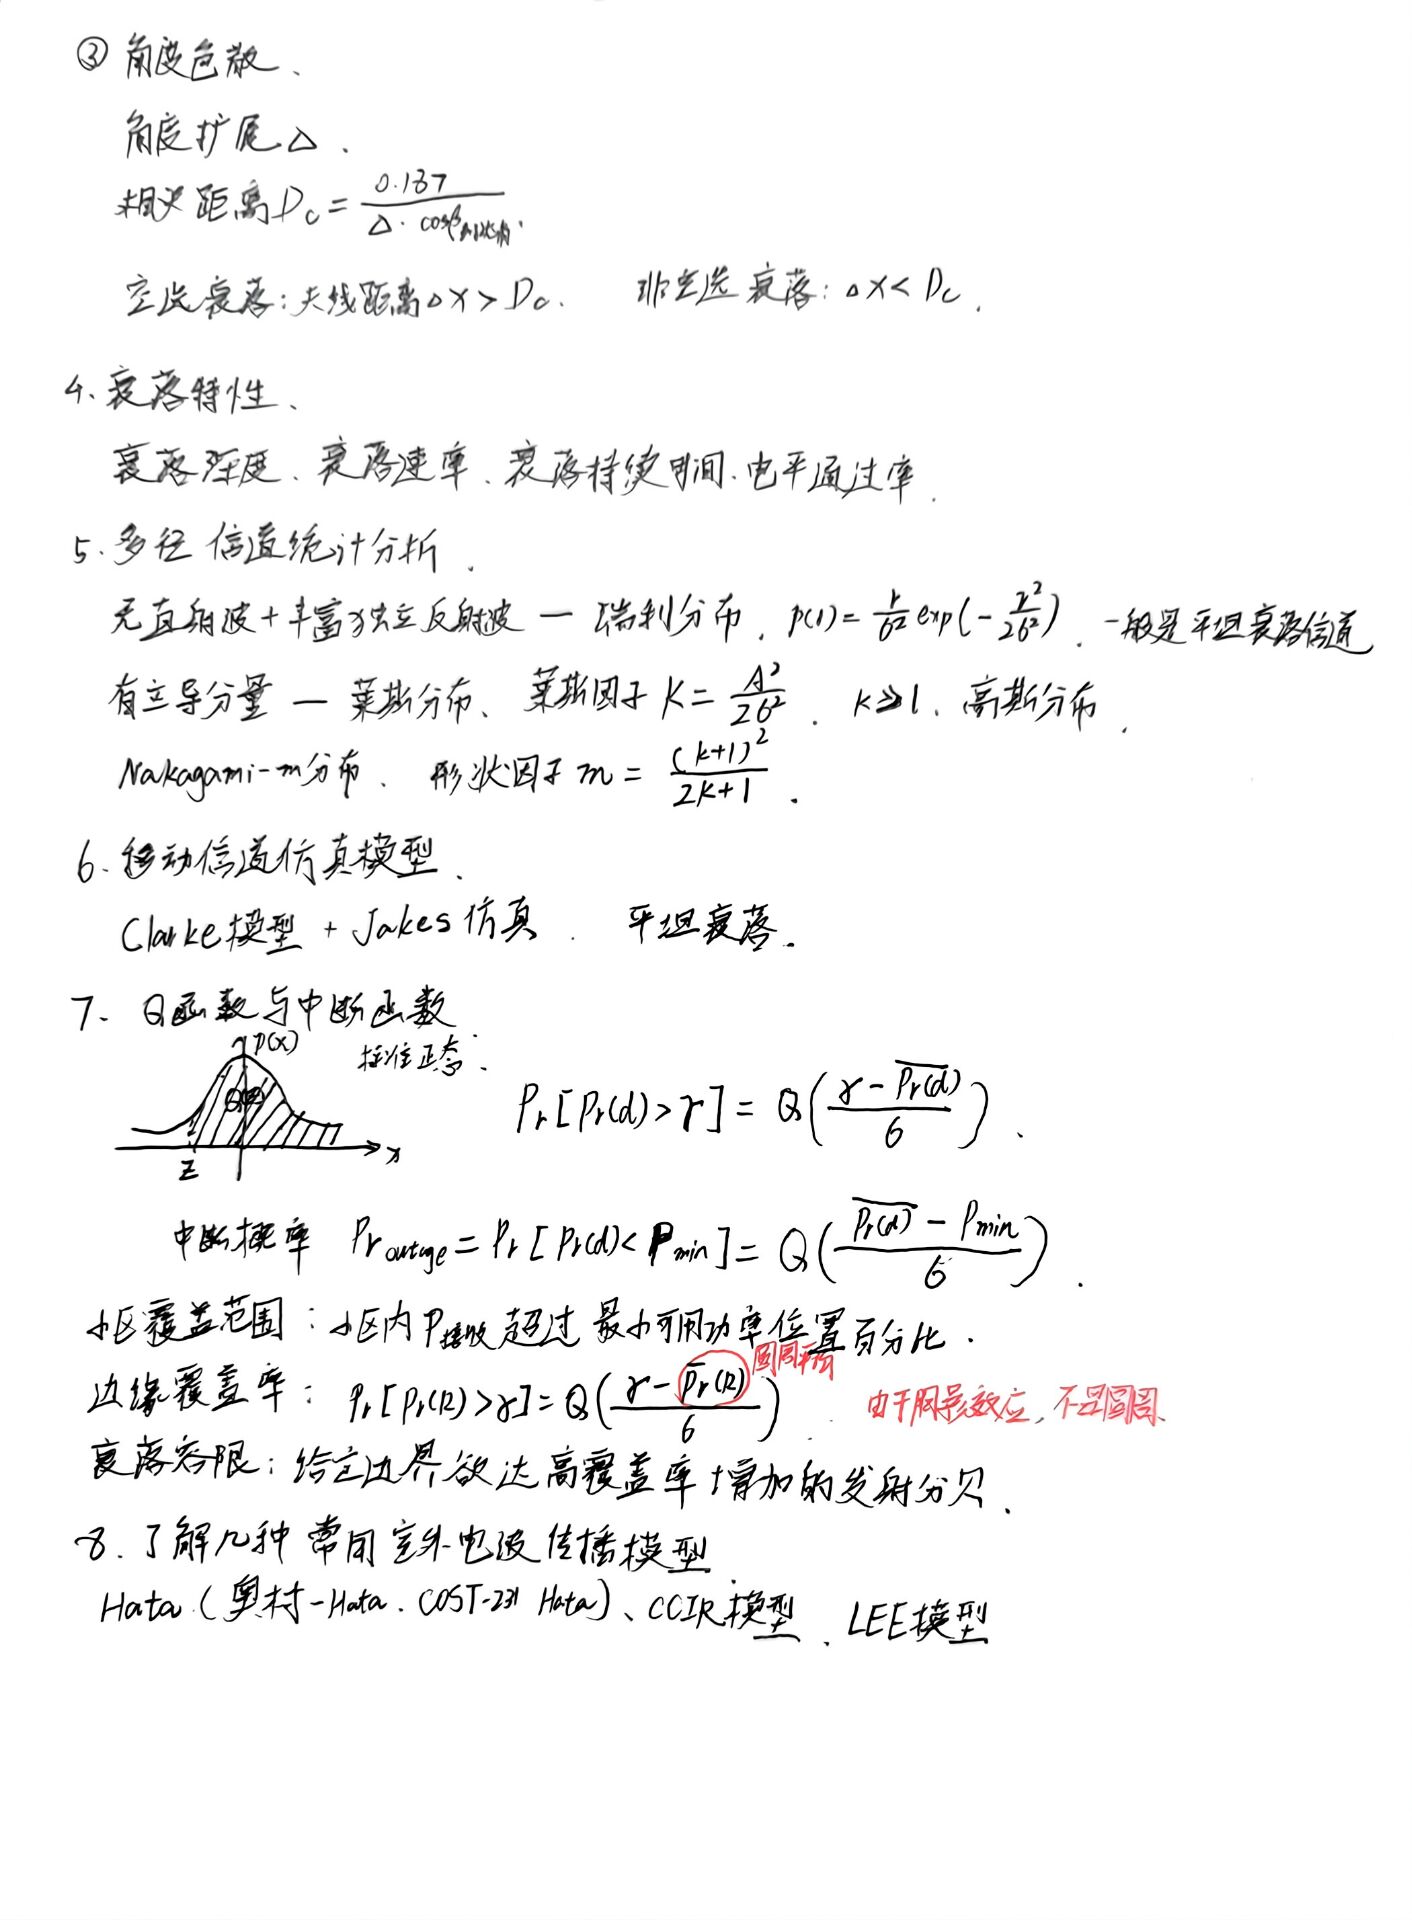 ③ 角度色散、
角度扩展△.
相关距离Dc = 0.187 / △·cosβ
空选衰落:天线距离△X > Dc. 非空选衰落:△X < Dc.
4、衰落特性、
衰落深度、衰落速率、衰落持续时间、电平通过率.
5、多径信道统计分析.
无直射波+丰富独立反射波 — 瑞利分布, p(r) = r/σ² exp(-r²/2σ²). 一般是平坦衰落信道
有主导分量 — 莱斯分布、莱斯因子 K = A²/2σ². K≫1、高斯分布.
Nakagami-m分布. 形状因子 m = (k+1)²/2k+1.
6、移动信道仿真模型.
Clarke模型 + Jakes仿真. 平坦衰落.
7、Q函数与中断函数
p(x) 标准正态.
z x
Pr[Pr(d)>γ] = Q((γ - \overline{Pr(d)})/σ).
中断概率 Pr outage = Pr[Pr(d)<Pmin] = Q((\overline{Pr(d)} - Pmin)/σ).
小区覆盖范围:小区内P接收超过最小可用功率位置百分比.
边缘覆盖率:Pr[Pr(R)>γ] = Q((γ - \overline{Pr(R)})/σ). 圆周平均 由于阴影效应,不是圆周、
衰落容限:给定边界欲达高覆盖率增加的发射分贝.
8.了解几种常用室外电波传播模型.
Hata(奥村-Hata. COST-231 Hata)、CCIR模型、LEE模型